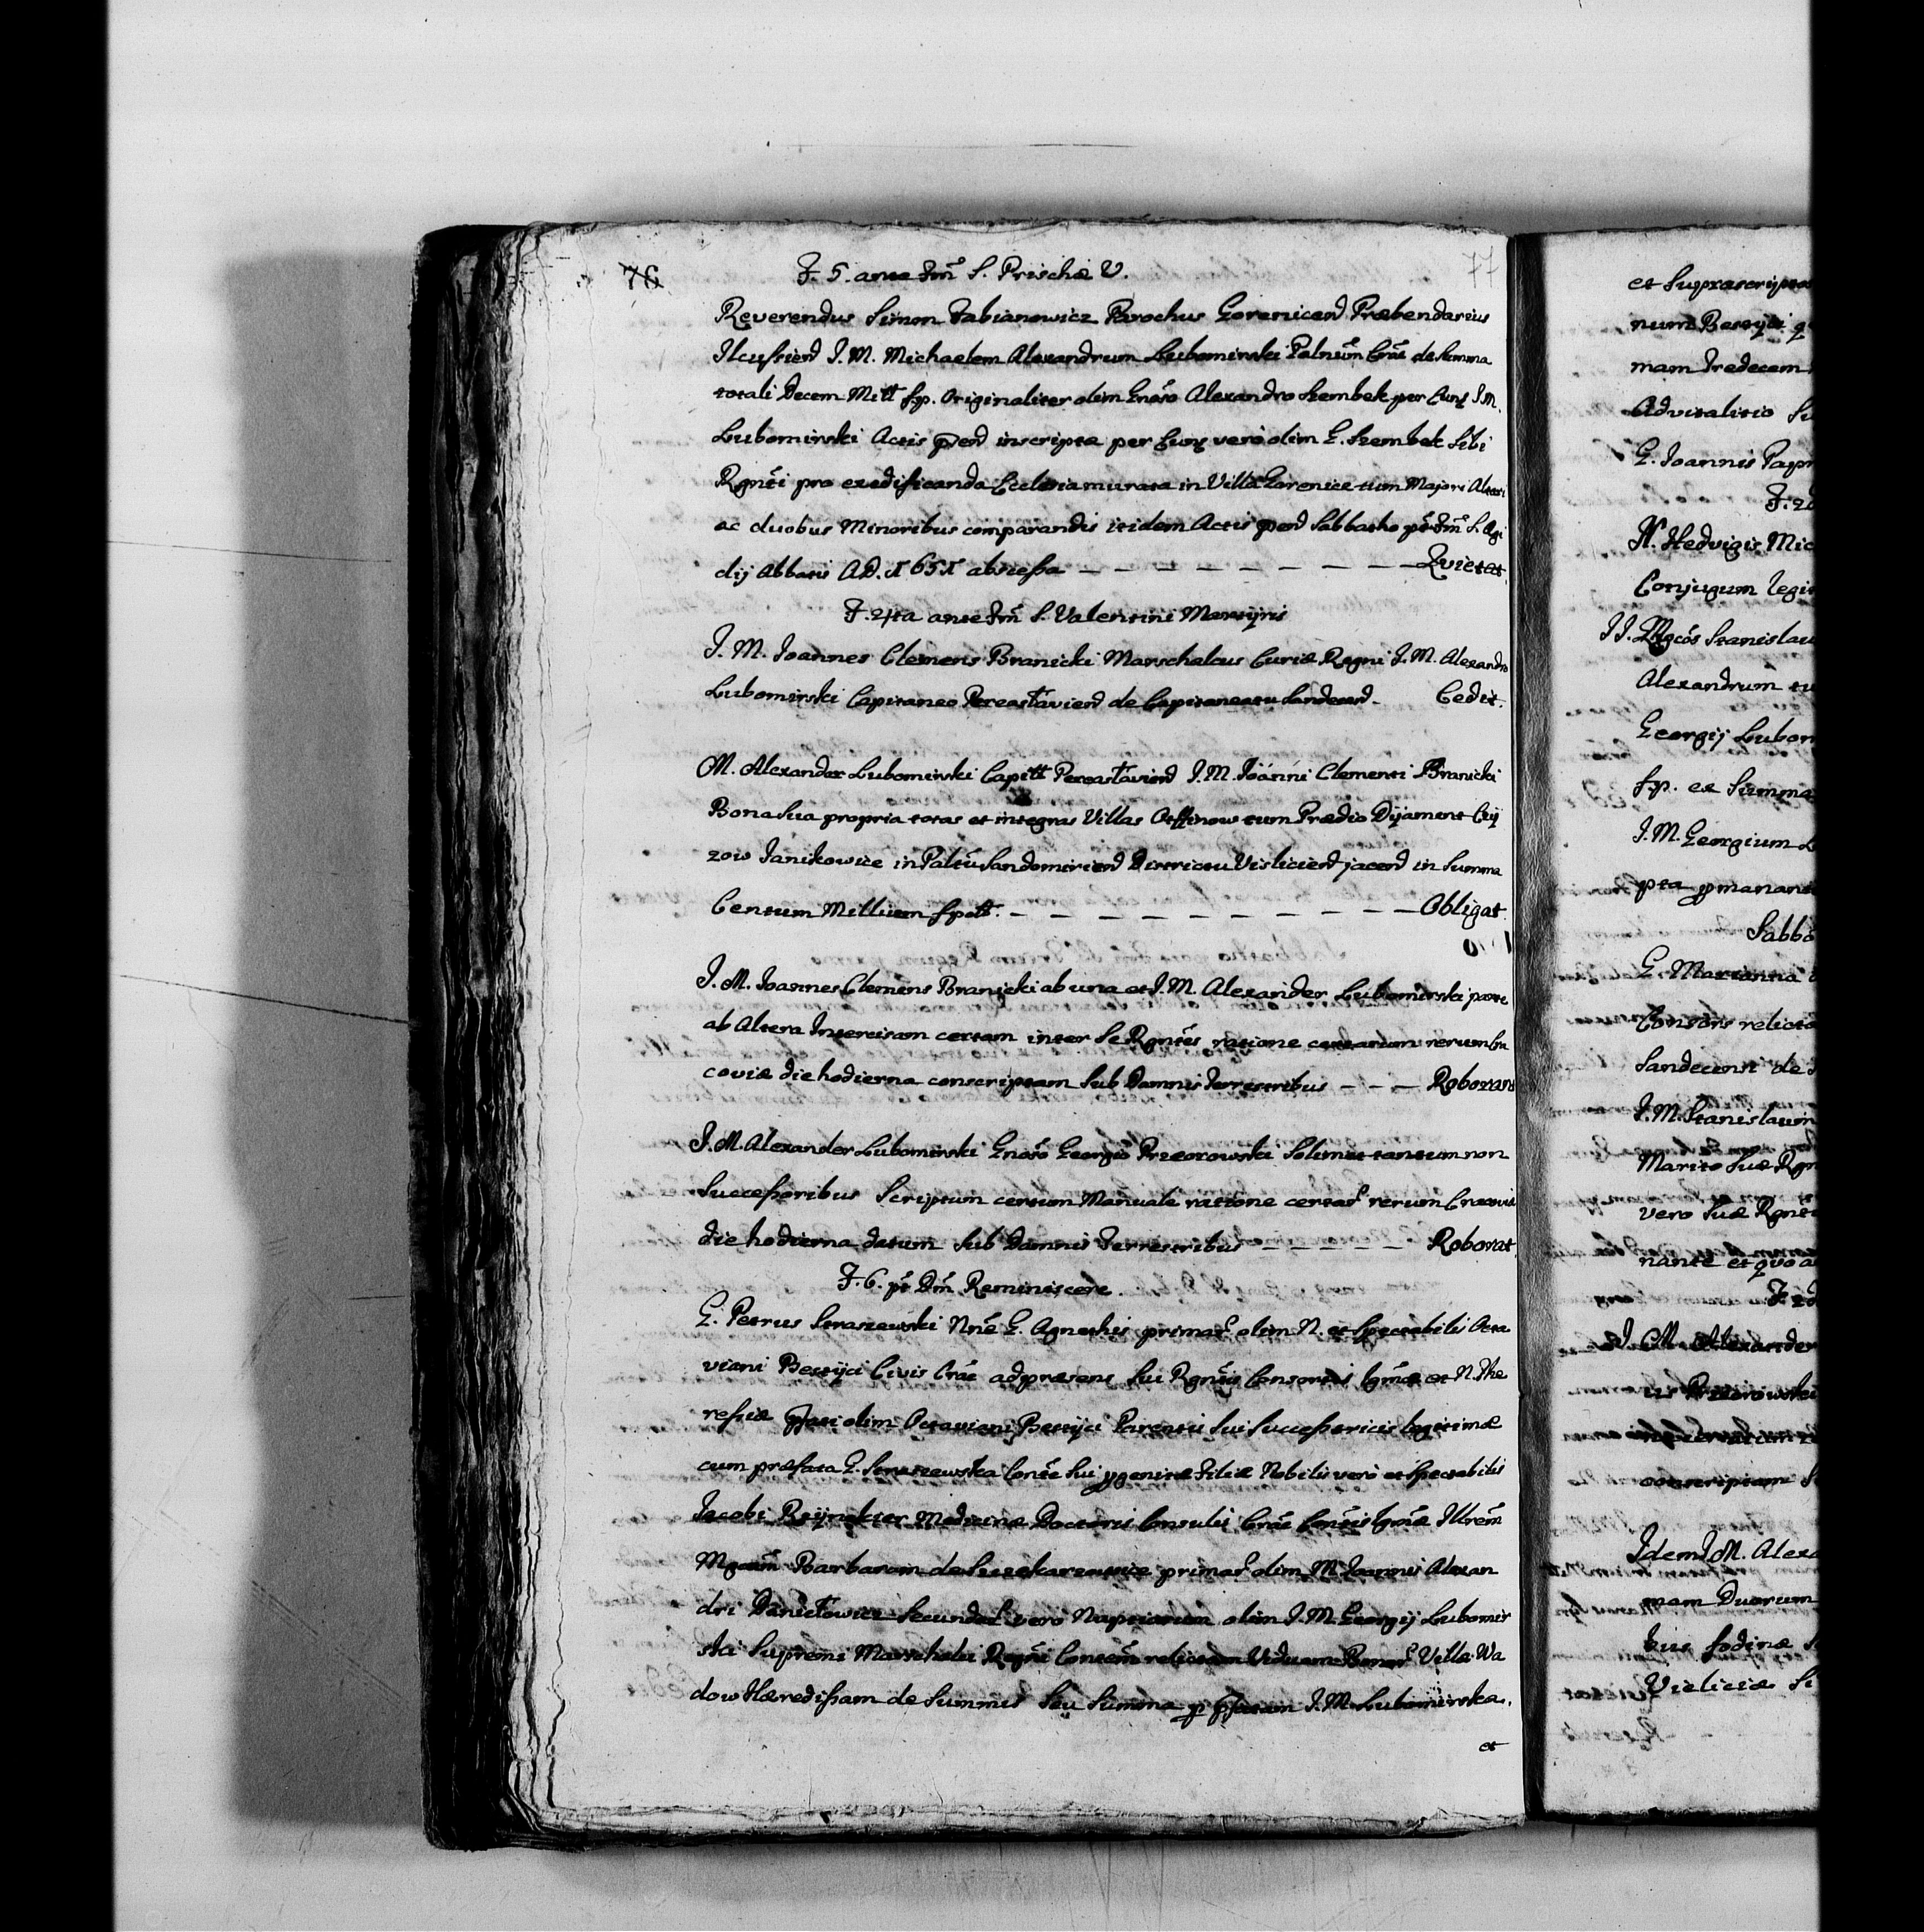 76
77
F. 5. ante Fm̃ S. Prischæ V.
Reverendus Simon Fabianowicz Parochus Gorenicen̄ Præbendarius
Ilcussien̄ I. M. Michaelem Alexandrum Lubomirski Palnũm Crãe de summa
totali Decem Mill̃ fp. Originaliter olim Gnõso Alexandro Szembek per Eunȝ I. M.
Lubomirski Actis p̄en̄ inscripta per Eunȝ vero olim G. Szembek Sibi
Rgnẽti pro exædificanda Ecclesia murata in Villa Gorenice tum Majori Altari
ac duobus Minoribus comparandis itidem Actis p̄en̄ Sabbatho pt̃ Fm̃ S. Ægi
dij Abbatis A.D. 1651 abscessa — — — — — — — — Quietat.
F. 4ta ante Fm̃ S. Valentini Martyris
I. M. Joannes Clemens Branicki Marschalcus Curiæ Regni I. M. Alexandro
Lubomirski Capitaneo Pereasłavien̄ de Capitaneatu Sandecen̄ - Cedit.
M. Alexander Lubomirski Capitt̃ Pereasłavien̄ I. M. Joánni Clementi Branicki
Bona Sua propria totas et integras Villas Otffinow cum Prædio Dyjament Czy
zow Janikowice in Paltũ Sandomirien̄ Districtu Vislicien̄ jacen̄ in Summa
Centum Millium fpoll. — — — — — — — — — — Obligat.
I. M. Joannes Clemens Branicki ab una et I. M. Alexander Lubomirski parte
ab Altera Intercisam certam inter Se Rgntẽs ratione certarum rerum Cra
coviæ die hodierna conscriptam Sub Damnis Terrestribus — — — Roborant
I. M. Alexander Lubomirski Gnõso Georgio Przeorowski Solimet tantum non
Successoribus Scriptum certum Manuale ratione certar̃ rerum Cracoviæ
die hodierna datum Sub Damnis Terrestribus — — — — — Roborat.
F. 6. pt̃ Dm̃ Reminiscere.
G. Petrus Straszewski Nnẽ G. Agnethis primar̃ olim N. et Spectabilis Octa
viani Bestyci Civis Crãe ad præsens Sui Rgnẽtis Consortis Lgmæ et N. The
resiæ p̄fati olim Octaviani Bestyci Parentis Sui Successoricis legitimæ
cum præfata G. Straszewska Consẽ Sui p̄genitæ Filiæ Nobilis vero et Spectabilis
Jacobi Reynekier Medicinæ Doctoris Consulis Crãe Consẽtis Lgmæ Illrem̃
Mgcam̃ Barbaram de primar̃ olim M. Joannis Alexan
dri Daniełowicz Secundar̃ vero Nuptiarum olim I. M. Georgij Lubomir
ski Supremi Marschalci Regni Consẽm relictam Viduam Bonor̃ Villæ Wa
dow Hæredissam de Summis Seu Summa p̱ p̄fatam I. M. Lubomirska.
et
et Suprascriptos
num Bestyci
mam Tredecem
Advitalitio Su
G. Joannis Papr
N. Hedvigis Mic
Conjugum legit
II. Mgcõs Stanislau
Alexandrum tu
Georgij Lubom
fp. ex Summa
I. M. Georgium L
pta p̱manant
Sabba
G. Marianna
Consors relicta
Sandecensi de
I. M. Stanislaum
Marito Suæ Rgn
vero Suæ Rgnẽti
nante et quo a
I. M. Alexander
conscriptam S
Idem I. M. Alexa
mam Duorum
hus fodinæ S
Vieliciæ Si